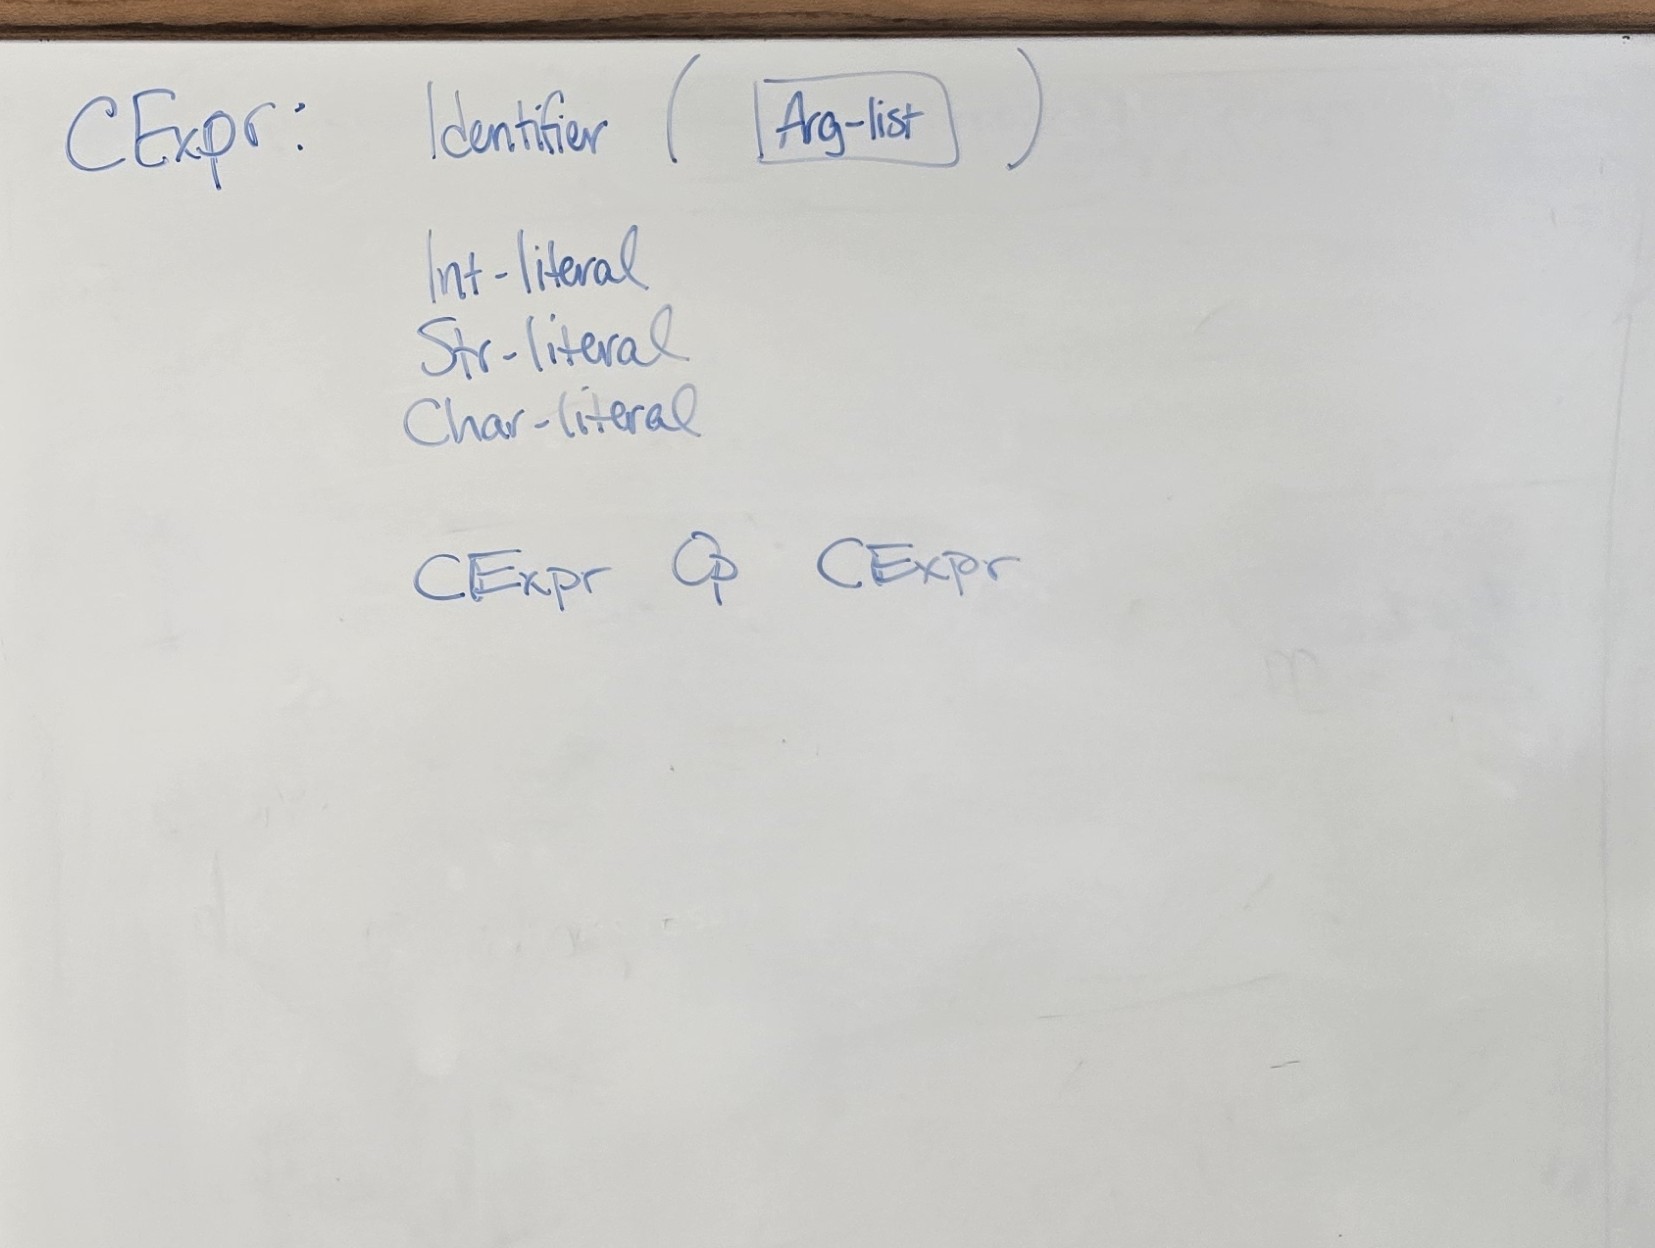 CExpr: Identifier ( Arg-list )
Int-literal
Str-literal
Char-literal
CExpr Op CExpr